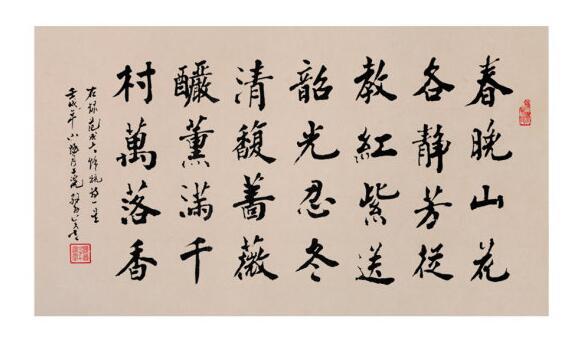 春晚山花
各静芳從
教紅紫送
韶光忍冬
清馥薔薇
釅薰滿千
村萬落香
右録范成大
詩一首